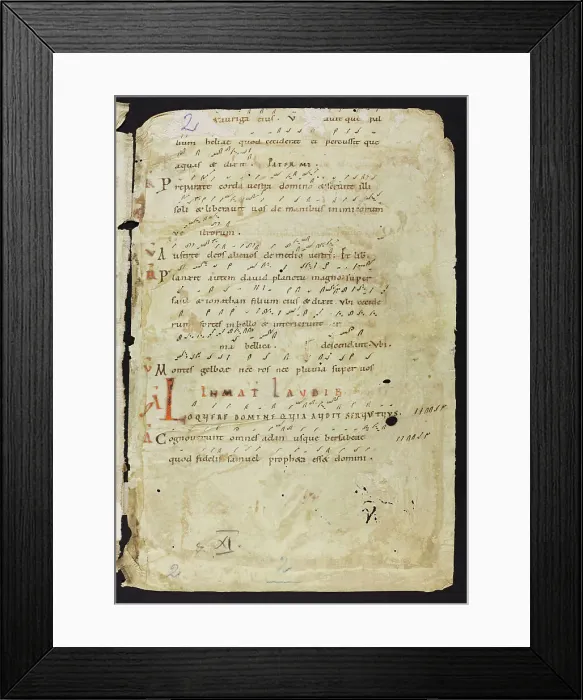 2
auriga eius. V aut que pal
lium heliae quod ceciderat ei percussit que
aquas & dixit. PATER MI.
Preparate corda vestra domino & servite illi
soli & liberavit vos de manibus inimicorum
vestrorum.
Auferte deos alienos de medio vestri. Et lib.
Planxit autem david planctu magno super
saul & ionathan filium eius & dixit. Ubi cecide
runt fortes in bello & interierunt
ma bellica. descendit. Ubi.
Montes gelboe nec ros nec pluvia super vos
LAUDIS
LOQUERE DOMINE QUIA AUDIT SERVUTUUS.
Cognoverunt omnes adan usque bersabeae
quod fidelis samuel propheta esset domini.
XI
2
2